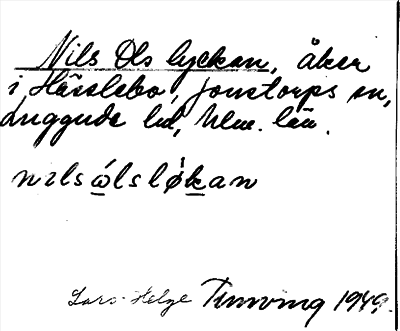 Nils Ols lyckan, åker
i Hässlebo, Jonstorps sn,
Luggude hd, Mlm. län.
nɪls ώ̲lsløk̲an
Lars-Helge Tunving 1949.